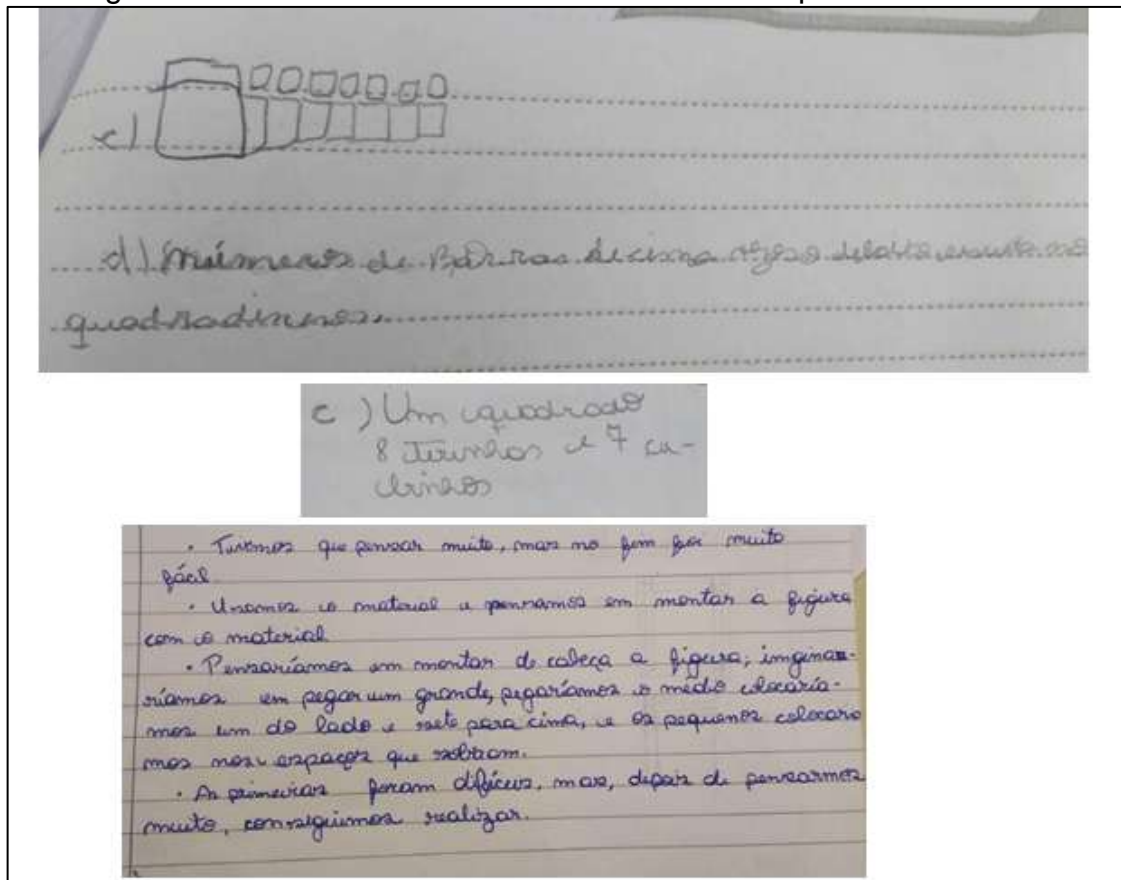 c)
d) números de Barras de cima
quadradinhos.
c) Um quadrado
8 tirinhas e 7 cu-
binhos
• Tivemos que pensar muito, mas no fim foi muito
fácil
• Usamos o material e pensamos em montar a figura
com o material
• Pensaríamos em montar de cabeça a figura, imgina-
ríamos em pegar um grande, pegaríamos o médio colocaría-
mos um do lado e sete para cima, e os pequenos colocaría
mos nos espaços que sobram.
• As primeiras foram difíceis, mas, depois de pensarmos
muito, conseguimos realizar.